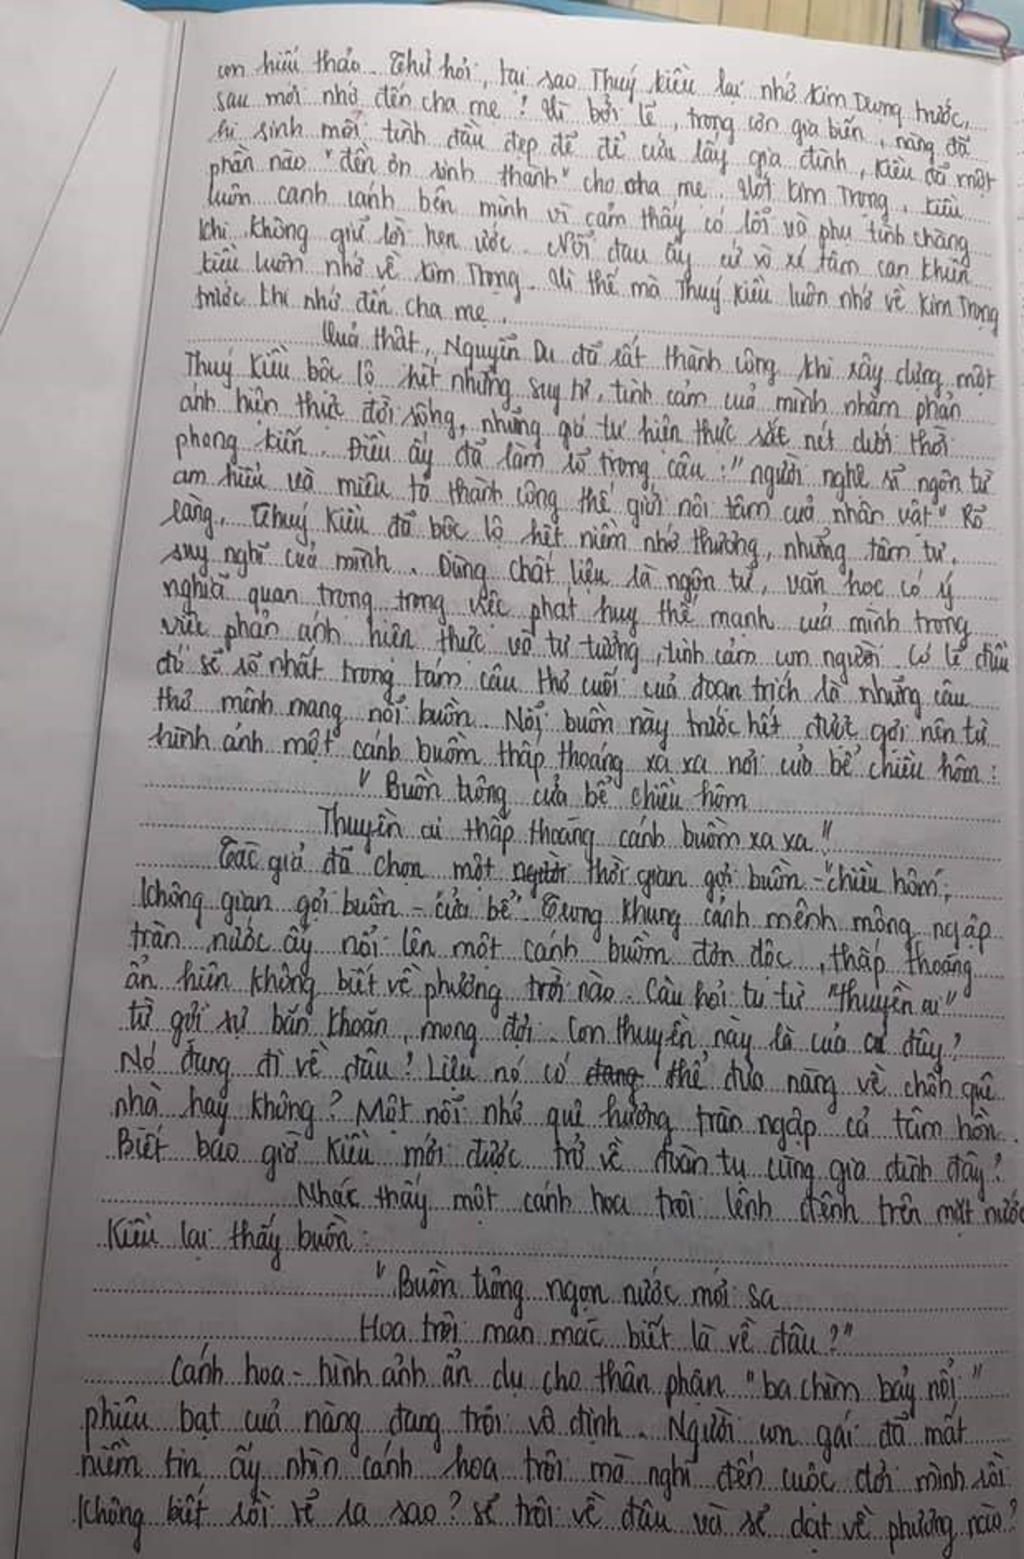 con hiếu thảo. Thử hỏi, tại sao Thuý Kiều lại nhớ Kim Trọng trước,
sau mới nhớ đến cha mẹ? Vì bởi lẽ, trong cơn gia biến, nàng đã
hi sinh mối tình đầu đẹp đẽ để cứu lấy gia đình, Kiều đã một
phần nào "đền ơn sinh thành" cho cha mẹ. Với Kim Trọng, Kiều
luôn canh cánh bên mình vì cảm thấy có lỗi và phụ tình chàng
khi không giữ lời hẹn ước. Nỗi đau ấy cứ vò xé tâm can khiến
Kiều luôn nhớ về Kim Trọng. Vì thế mà Thuý Kiều luôn nhớ về Kim Trọng
trước khi nhớ đến cha mẹ.
Quả thật, Nguyễn Du đã rất thành công khi xây dựng một
Thuý Kiều bộc lộ hết những suy tư, tình cảm của mình nhằm phản
ánh hiện thực đời sống, những gì tư hiện thực sắc nét dưới thời
phong kiến. Điều ấy đã làm rõ trong câu: "người nghệ sĩ ngôn từ
am hiểu và miêu tả thành công thế giới nội tâm của nhân vật" Rõ
ràng, Thuý Kiều đã bộc lộ hết niềm nhớ thương, những tâm tư,
suy nghĩ của mình. Dùng chất liệu là ngôn từ, văn học có ý
nghĩa quan trọng trong việc phát huy thế mạnh của mình trong
việc phản ánh hiện thực và tư tưởng, tình cảm con người. Có lẽ điều
đó sẽ rõ nhất trong tám câu thơ cuối của đoạn trích là những câu
thơ mênh mang nỗi buồn. Nỗi buồn này trước hết được gợi nên từ
hình ảnh một cánh buồm thấp thoáng xa xa nơi cửa bể chiều hôm:
"Buồn trông cửa bể chiều hôm
Thuyền ai thấp thoáng cánh buồm xa xa"
Tác giả đã chọn một thời gian gợi buồn - "chiều hôm",
không gian gợi buồn - "cửa bể". Trung khung cảnh mênh mông ngập
tràn nước ấy nổi lên một cánh buồm đơn độc, thấp thoáng
ẩn hiện không biết về phương trời nào. Câu hỏi tu từ "thuyền ai"
từ gợi sự băn khoăn, mong đợi. Con thuyền này là của ai đây?
Nó đang đi về đâu? Liệu nó có thể đưa nàng về chốn quê
nhà hay không? Một nỗi nhớ quê hương tràn ngập cả tâm hồn.
Biết bao giờ Kiều mới được trở về đoàn tụ cùng gia đình đây?
Nhác thấy một cánh hoa trôi lênh đênh trên mặt nước
Kiều lại thấy buồn:
"Buồn trông ngọn nước mới sa
Hoa trôi man mác biết là về đâu?"
Cánh hoa - hình ảnh ẩn dụ cho thân phận "ba chìm bảy nổi"
phiêu bạt của nàng đang trôi vô định. Người con gái đã mất
niềm tin ấy nhìn cánh hoa trôi mà nghĩ đến cuộc đời mình rồi
không biết rồi sẽ ra sao? sẽ trôi về đâu và sẽ dạt về phương nào?